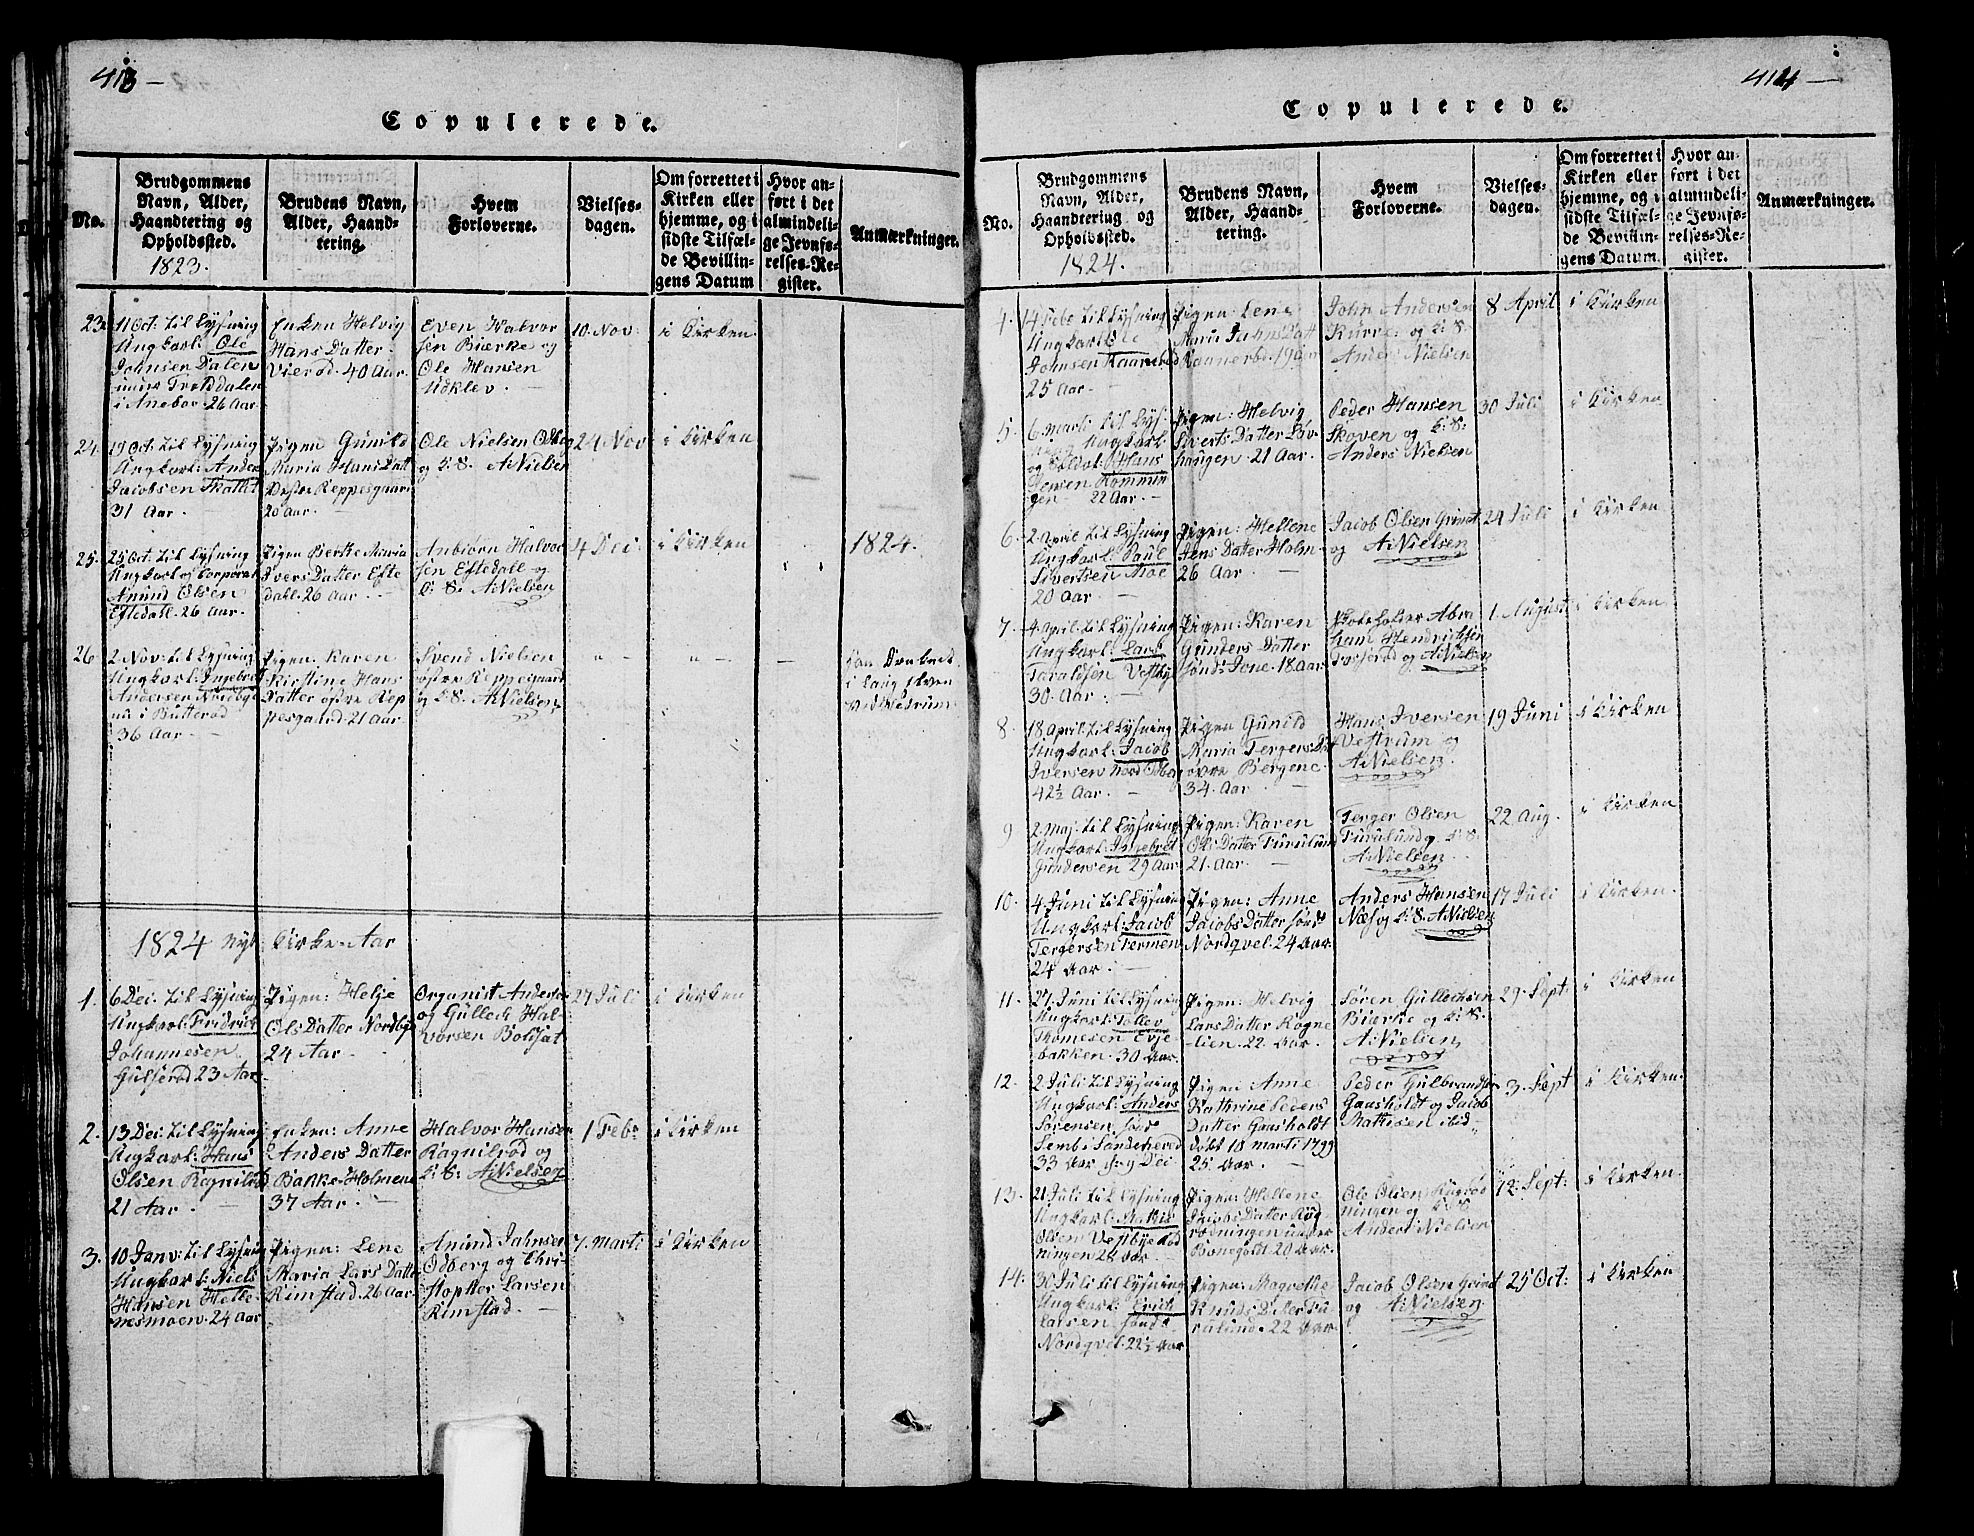 413 —
Copulerede.
No.
Brudgommens
Navn, Alder,
Haandtering og
Opholdssted.
1823.
Brudens Navn,
Alder, Haand-
tering.
Hvem
Forloverne.
Vielses-
dagen.
Om forrettet i
Kirken eller
hjemme, og i
sidste Tilfæl-
de Bevillin-
gens Datum
Hvor an-
ført i det
almindeli-
ge Jevnfø-
relses-Re-
gister.
Anmærkninger.
23.
11 Oct. til Lysning
Ungkarl: Ole
Johnsen Dalen
under Trolddalen
i Aneboe. 26 Aar.
Enken Helvig
Hans Datter
Vierød. 40 Aar.
Even Halvor
sen Bierke og
Ole Hansen
Udklev. —
10. Nov:
i Kirken
24.
19 Oct. til Lysning
Ungkarl: Anders
Jacobsen Skallet
31 Aar. —
Pigen Gunild
Maria Hans Datt
Øvre Reppesgaard
20 Aar. —
Ole Nielsen Odberg
og K: S. A. Nielsen
24 Nov
i Kirken
25.
25 Oct. til Lysning
Ungkarl og Corporal
Amund Olsen
Eftedall. 26 Aar.
Pigen Berthe Maria
Ivers Datter Efte
dahl. 26 Aar. —
Anbiørn Halvor
sen Eftedall og
K: S. A. Nielsen
4 Dec:
i Kirken
1824.
26
2 Nov: til Lysning
Ungkarl: Ingebret
Andersen Nordbye
nu i Butterød
36 Aar. —
Pigen Karen
Kirstine Hans
Datter øvre Rep
pesgaard. 21 Aar.
Svend Nielsen
øvre Reppesgaard
og K: S. A. Nielsen
" —
" —
—
han Druknede
i Laug
ved Vestrum.
1824 Nyt Kirke-Aar
1.
6 Dec. til Lysning
Ungkarl: Fridrich
Johannesen
Gulserød 23 Aar
Pigen: Helje
Ols Datter Nordbye
24 Aar. —
Organist Andersen
og Gullech Hal-
vorsen Bolifat
27 Juli
i Kirken
2.
13 Dec. til Lysning
Ungkarl: Hans
Olsen Ragnilrød
21 Aar. —
Enken: Anne
Anders Datter
Bakke-Holmene
37 Aar. —
Halvor Hansen
Ragnilrød og
K: S. A. Nielsen
1 Febr
i Kirken
3.
10 Janv: til Lysning
Ungkarl: Niels
Hansen Helle
nesmoen. 24 Aar
Pigen: Lene
Maria Lars Datter
Rimstad. 26 Aar
Amund Jahnsen
Odberg og Chri-
stopher Larsen
Rimstad. —
7. Marti
i Kirken
414 —
Copulerede.
No.
Brudgommens
Navn, Alder,
Haandtering og
Opholdssted.
1824.
Brudens Navn,
Alder, Haand-
tering.
Hvem
Forloverne.
Vielses-
dagen.
Om forrettet i
Kirken eller
hjemme, og i
sidste Tilfæl-
de Bevillin-
gens Datum.
Hvor an-
ført i det
almindeli-
ge Jevnfø-
relses-Re-
gister.
Anmærkninger.
4.
14 Febr til Lysning
Ungkarl: Ole
Johnsen Kaanerød
25 Aar. —
Pigen: Lene
Maria Jahns Datt
Kaanerød. 19 Aar
John Andersen
Kurre: og K: S.
Anders Nielsen
8 April
i Kirken
5.
6 Marti til Lys-
ning Ungkarl
og Soldat: Hans
Jensen Kommin
gen — 22 Aar. —
Pigen: Helvig
Siverts Datter Løv
haugen. 21 Aar.
Peder Hansen
Skoven og K: S:
Anders Nielsen
30 Juli
i Kirken
6.
2 April til Lysning
Ungkarl: Paul
Sivertsen Moe
20 Aar. —
Pigen: Hellene
Jens Datter Holm
26 Aar. —
Jacob Olsen Grinot
og A. Nielsen
24 Juli
i Kirken
7.
4 April: til Lysning
Ungkarl: Lars
Taraldsen Vestbye
30 Aar. —
Pigen: Karen
Gunders Datter
søndr Jone. 18 Aar.
Abra
ham Hendrichsen
og A. Nielsen
1. August
i Kirken
8.
18 April: til Lysning
Ungkarl: Jacob
Iversen Nord Odberg
42½ Aar. —
Pigen Gunild
Maria Tergers Dat
øvre Bergene
34. Aar.
Hans Iversen
Vestrum og
A. Nielsen
19 Juni
i Kirken
9
2. Maj: til Lysning
Ungkarl: Ingebret
Gundersen 29 Aar
Pigen: Karen
Ols Datter Furulund
21. Aar. —
Terger Olsen
Furulund og K: S.
A. Nielsen
22 Aug.
i Kirken
10.
4 Juni til Lysning
Ungkarl: Jacob
Tergersen Vermen
24 Aar. —
Pigen: Anne
Jacobs Datter søndr
Nordqvel. 24 Aar.
Anders Hansen
Næs og K: S. A. Nielsen
17 Juli
i Kirken.
11.
27. Juni til Lysning
Ungkarl: Tollev
Thomesen Evje
bakken. 30 Aar.
Pigen: Helvig
Lars Datter Rogne
-lien. 22 Aar.
Søren Gullechsen
Bierke og K: S.
A. Nielsen
29 Sept:
i Kirken
12.
2 Juli til Lysning
Ungkarl: Anders
Sørensen søndr
Semb i Sandeherred
33 Aar d: 9 Dec
Pigen Anne
Kathrine Peders
Datter Gausholdt
døbt 10 Marti 1799
25 Aar. —
Peder Gulbrandsen
Gausholdt og Jacob
Mathisen ibid
3. Sept
i Kirken
13.
21 Juli til Lysning
Ungkarl: Mathis
Olsen Vestbye Rød
ningen 24 Aar.
Pigen: Hellene
Jacobs Datter Rød
rødningen under
20 Aar.
Ole Olsen
ningen og K: S
Anders Nielsen
12. Sept:
i Kirken.
14.
30 Juli til Lysning
Ungkarl: Erich
Larsen søndr
Nordqvel. 22½ Aar
Pigen: Magrethe
Knuds Datter Fu
rulund. 22 Aar
Jacob Olsen Grinot
og A. Nielsen
25 Oct:
i Kirken